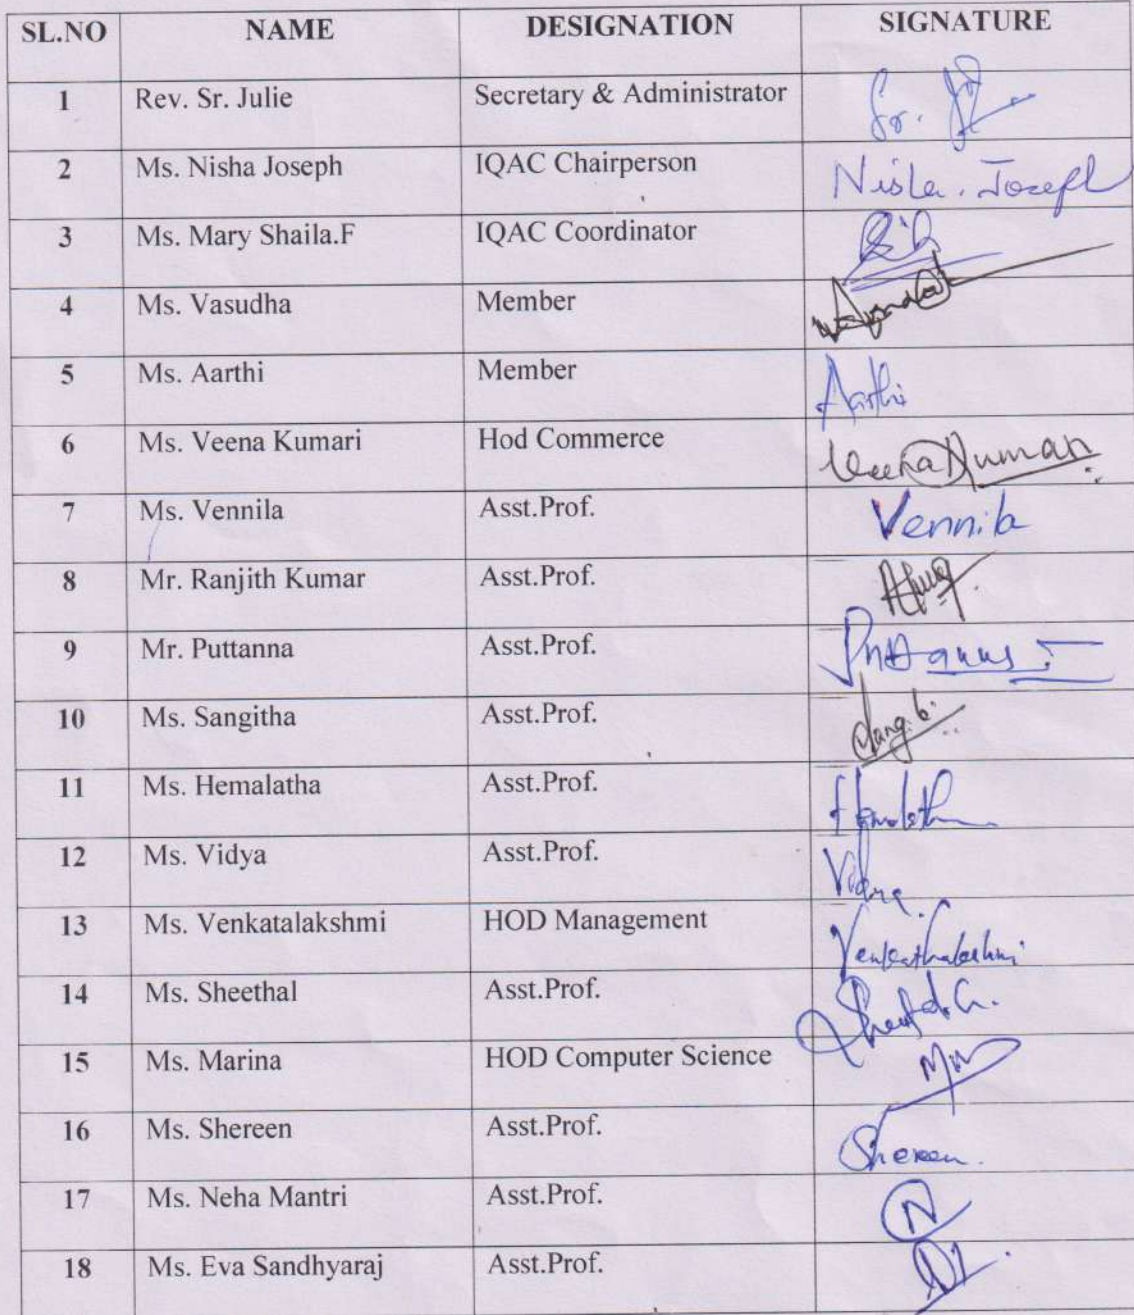 SL.NO NAME DESIGNATION SIGNATURE
1 Rev. Sr. Julie Secretary & Administrator Sr.
2 Ms. Nisha Joseph IQAC Chairperson Nisha. Joseph
3 Ms. Mary Shaila.F IQAC Coordinator
4 Ms. Vasudha Member
5 Ms. Aarthi Member Aarthi
6 Ms. Veena Kumari Hod Commerce Veena Kumari
7 Ms. Vennila Asst.Prof. Vennila
8 Mr. Ranjith Kumar Asst.Prof.
9 Mr. Puttanna Asst.Prof.
10 Ms. Sangitha Asst.Prof.
11 Ms. Hemalatha Asst.Prof.
12 Ms. Vidya Asst.Prof. Vidya
13 Ms. Venkatalakshmi HOD Management Venkathalakshmi
14 Ms. Sheethal Asst.Prof.
15 Ms. Marina HOD Computer Science
16 Ms. Shereen Asst.Prof. Shereen.
17 Ms. Neha Mantri Asst.Prof. N
18 Ms. Eva Sandhyaraj Asst.Prof.